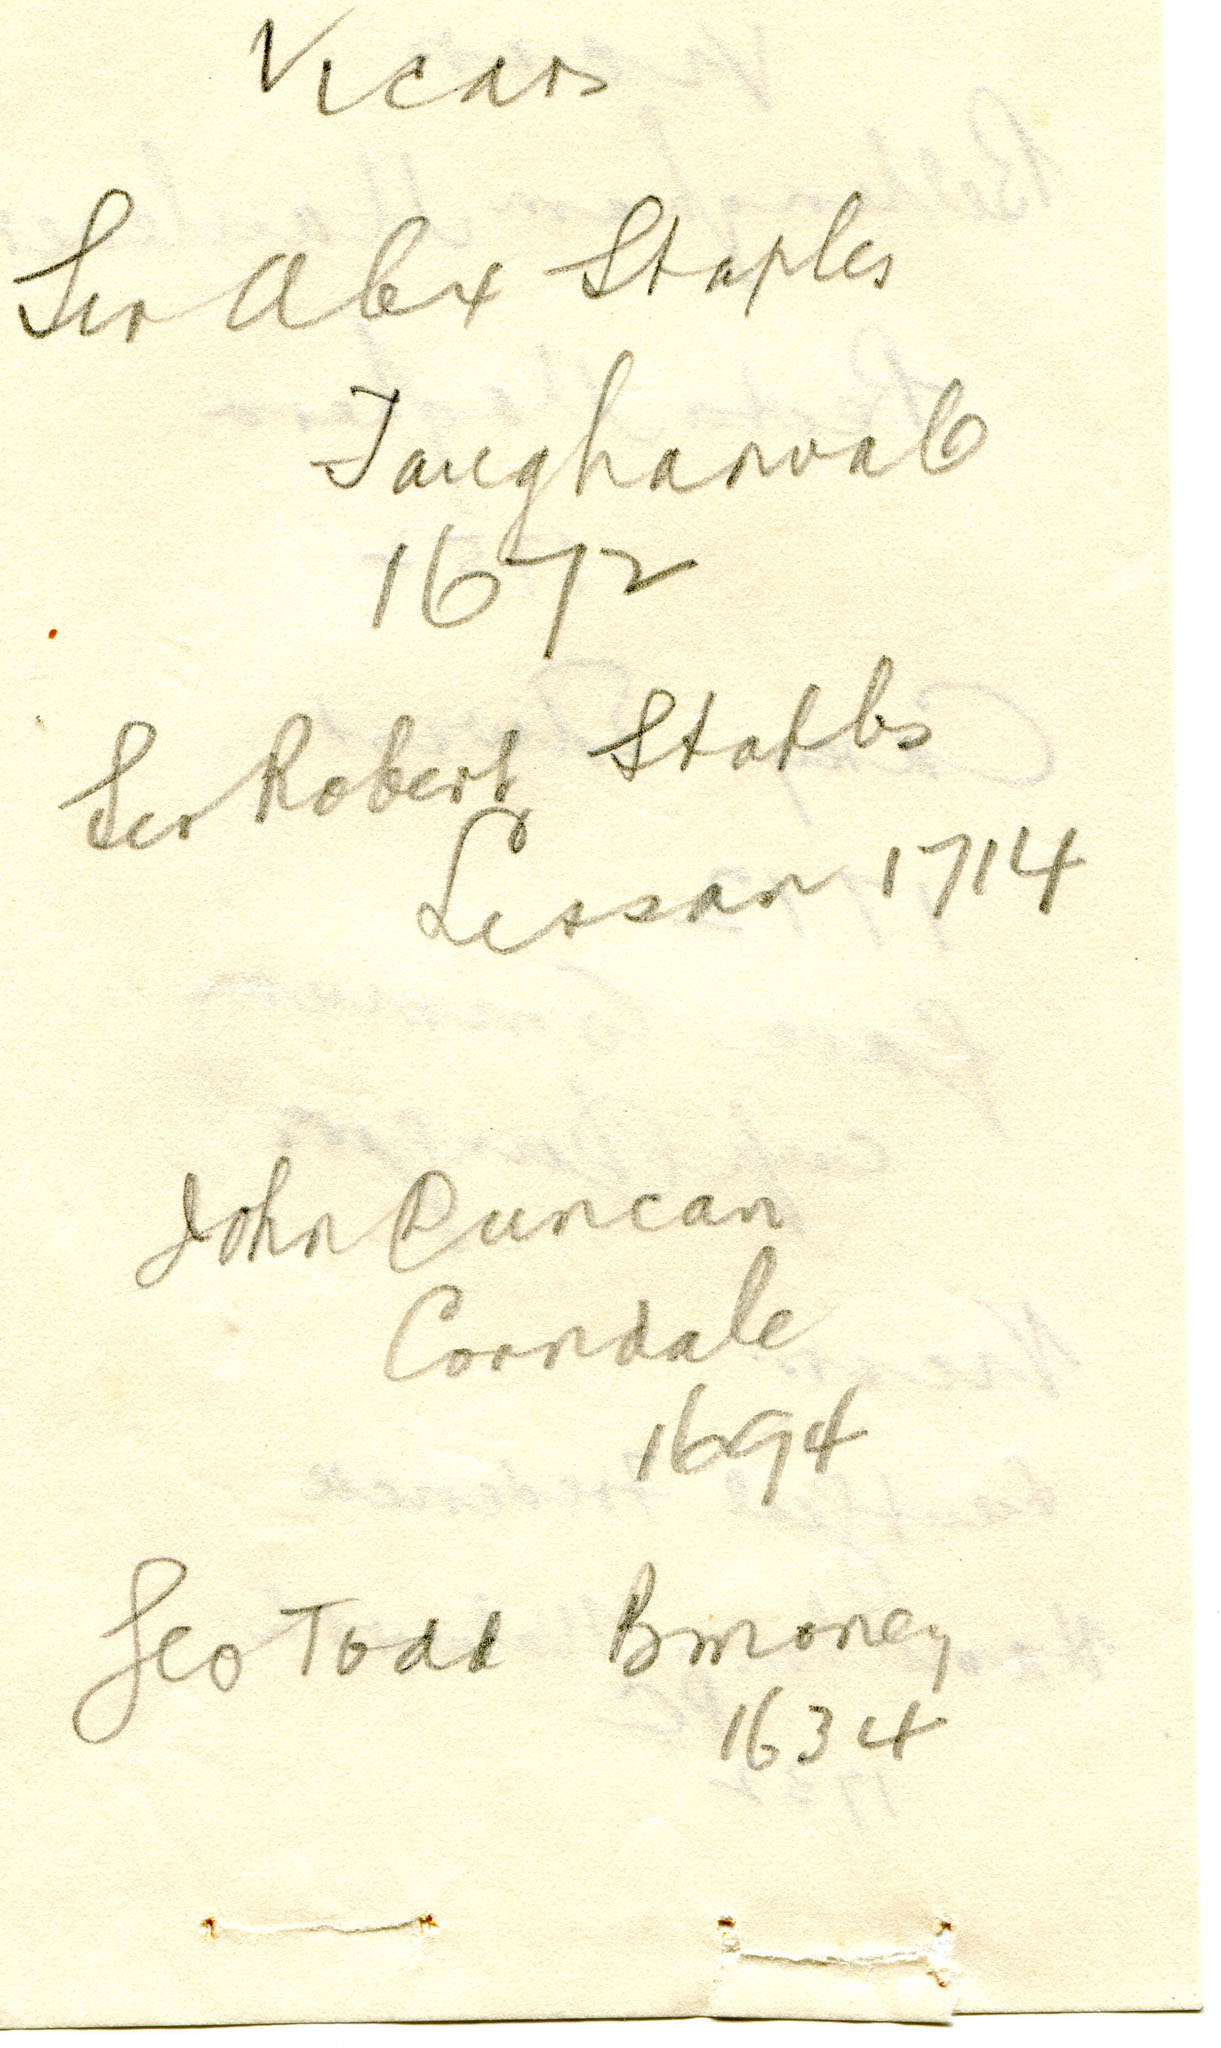 Vicars
Sir Alex Staples
Faughanvale
1672
Sir Robert Staples
Lissan 1714
John Duncan
Corndale
1694
Geo Todd Bmoney
1634